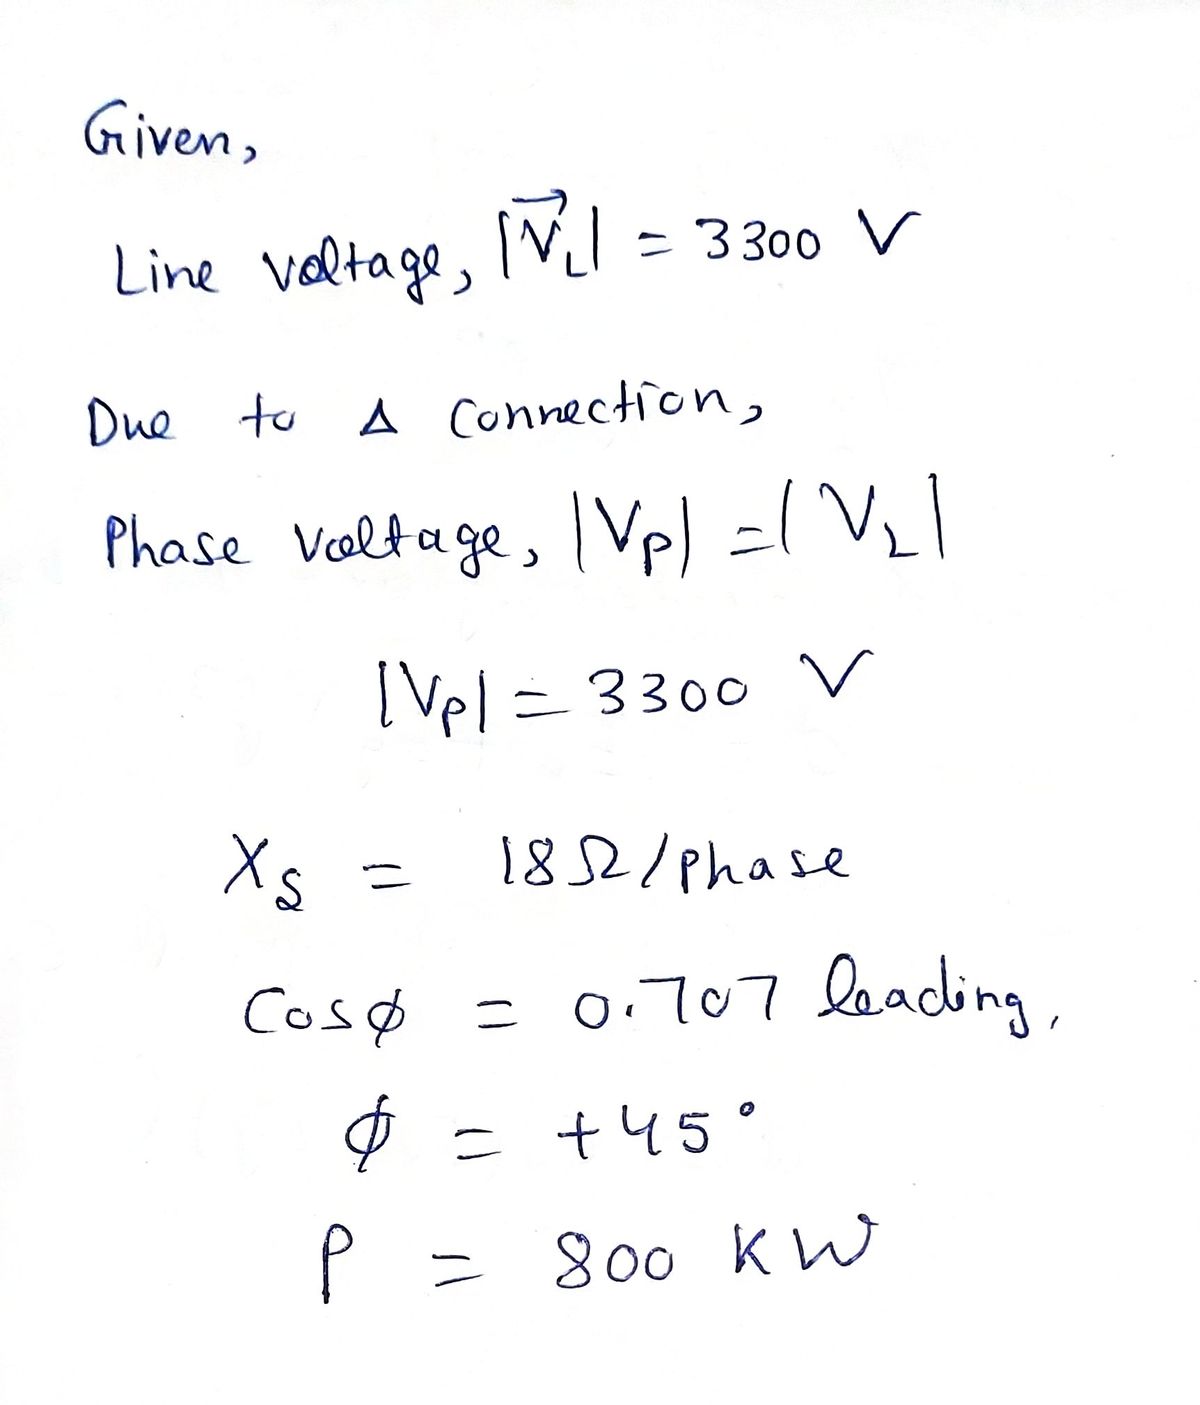 Given,
Line voltage, |V⃗_L| = 3300 V
Due to Δ Connection,
Phase Voltage, |V_P| = |V_L|
|V_P| = 3300 V
X_S = 18Ω/Phase
Cosφ = 0.707 leading,
φ = +45°
P = 800 KW